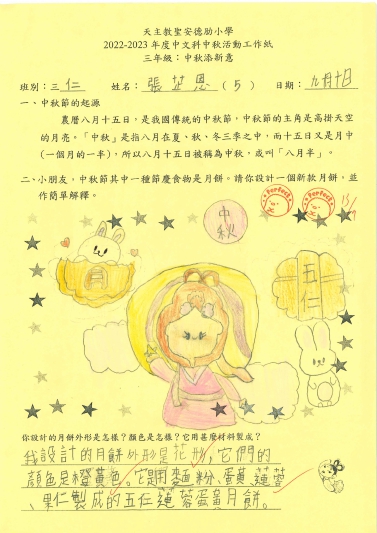 天主教聖安德肋小學
2022-2023 年度中文科中秋活動工作紙
三年級：中秋添新意
班別：三 仁 姓名： 張芷恩 ( 5 ) 日期： 九月十日
一、中秋節的起源
農曆八月十五日，是我國傳統的中秋節，中秋節的主角是高掛天空
的月亮。「中秋」是指八月在夏、秋、冬三季之中，而十五日又是月中
(一個月的一半)，所以八月十五日被稱為中秋，或叫「八月半」。
二、小朋友，中秋節其中一種節慶食物是月餅。請你設計一個新款月餅，並
作簡單解釋。
Perfect
Perfect
中秋
五仁
你設計的月餅外形是怎樣？顏色是怎樣？它用甚麼材料製成？
我設計的月餅外形是花形，它們的
顏色是橙黃色。它是用麵粉、蛋黃、蓮蓉
、果仁製成的五仁蓮蓉蛋黃月餅。